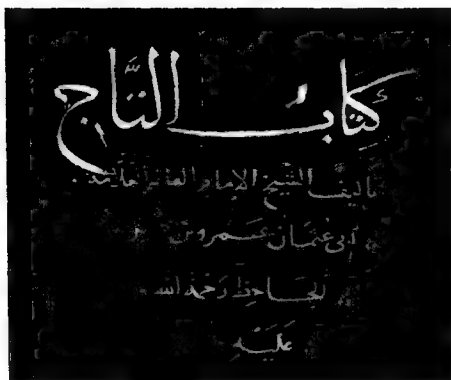 كتابُ التَّاج
تأليف الشيخ الإمام العالم
أبى عثمان عمرو بن
الجاحظ رحمة الله
عليه